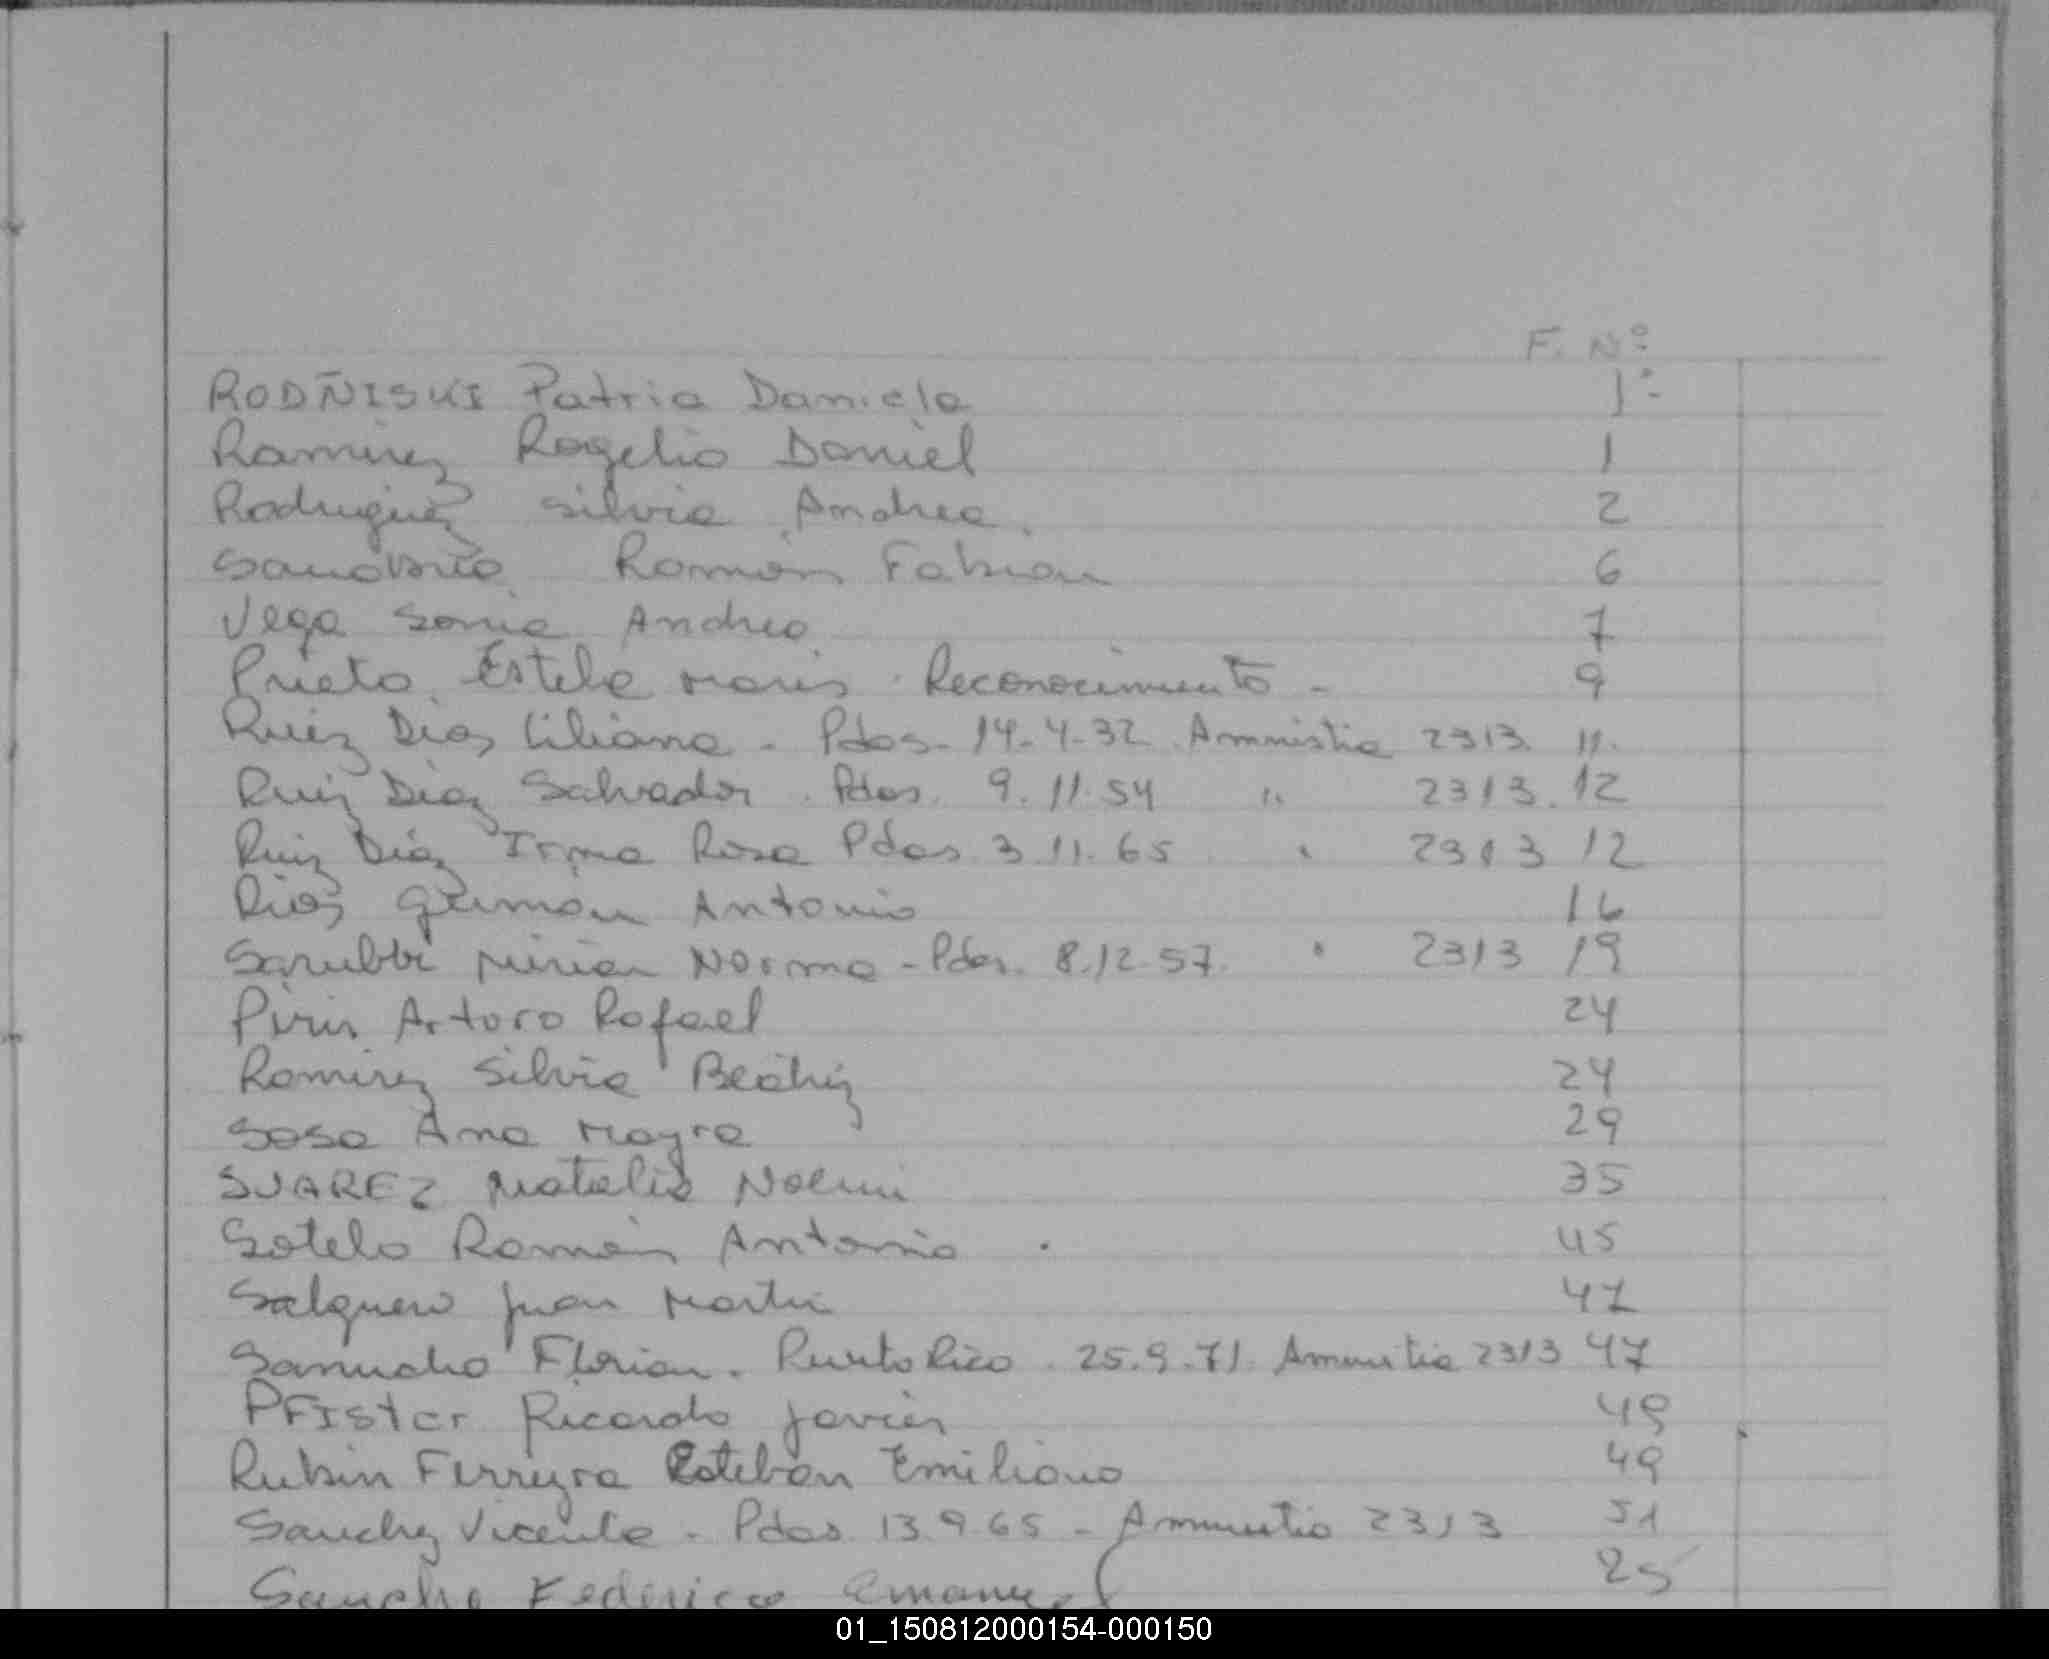 F. Nº
RODÑISKI Patria Daniela 1º-
Ramirez Rogelio Daniel 1
Rodriguez Silvia Andrea. 2
Sanabria Ramón Fabian 6
Vega Sonia Andrea 7
Prieto Estela Maris. Reconocimiento - 9
Ruiz Dias Liliana - Pdas- 14-4-32 Amnistia 2313. 11.
Ruiz Diaz Salvador. Pdas. 9.11.54 " 2313. 12
Ruiz Diaz Irma Rosa Pdas 3.11.65 " 2313 12
Rios Germán Antonio 16
Sarubbi Mirian Norma - Pdas. 8.12.57. " 2313 19
Piris Arturo Rafael 24
Ramirez Silvia Beatriz 24
Sosa Ana Mayra 29
SUAREZ Natalia Noemi 35
Sotelo Ramón Antonio . 45
Salguero Juan Martin 47
Samudio Florian. Puerto Rico. 25.9.71. Amnistia 2313 47
PFISter Ricardo Javier 49
Rubin Ferreyra Esteban Emiliano 49
Sanchez Vicente - Pdas 13.9.65 - Amnistia 2313 51
Sanche Federico Emanuel 25
01_150812000154-000150